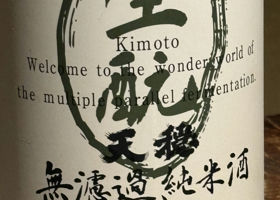 生酛
Kimoto
Welcome to the wonder world of
the multiple parallel fermentation.
天穏
無濾過純米酒